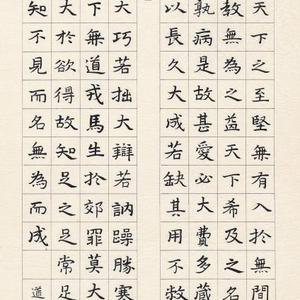 天下之至堅無有入於無間
教無為之益天下希及之名
孰病是故甚愛必大費多藏
以長久大成若缺其用不敝
大巧若拙大辯若訥躁勝寒
下無道戎馬生於郊罪莫大
大於欲得故知足之足常足
知不見而名無為而成 道